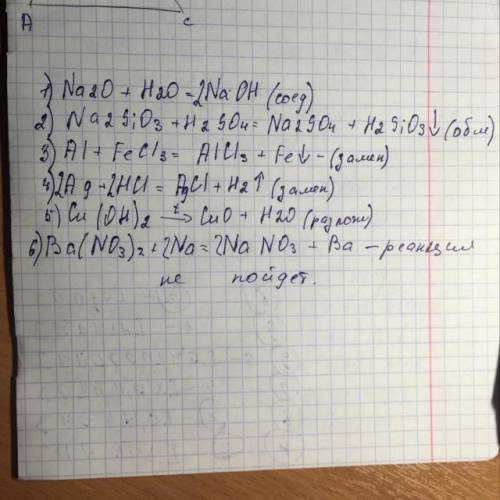 A c
1) Na2O + H2O = 2NaOH (соед)
2) Na2SiO3 + H2SO4 = Na2SO4 + H2SiO3↓ (обм)
3) Al + FeCl3 = AlCl3 + Fe↓ - (замен)
4) 2Ag + 2HCl = AgCl + H2↑ (замен)
5) Cu(OH)2 t→ CuO + H2O (разлож)
6) Ba(NO3)2 + 2Na = 2NaNO3 + Ba - реакция
не пойдет.